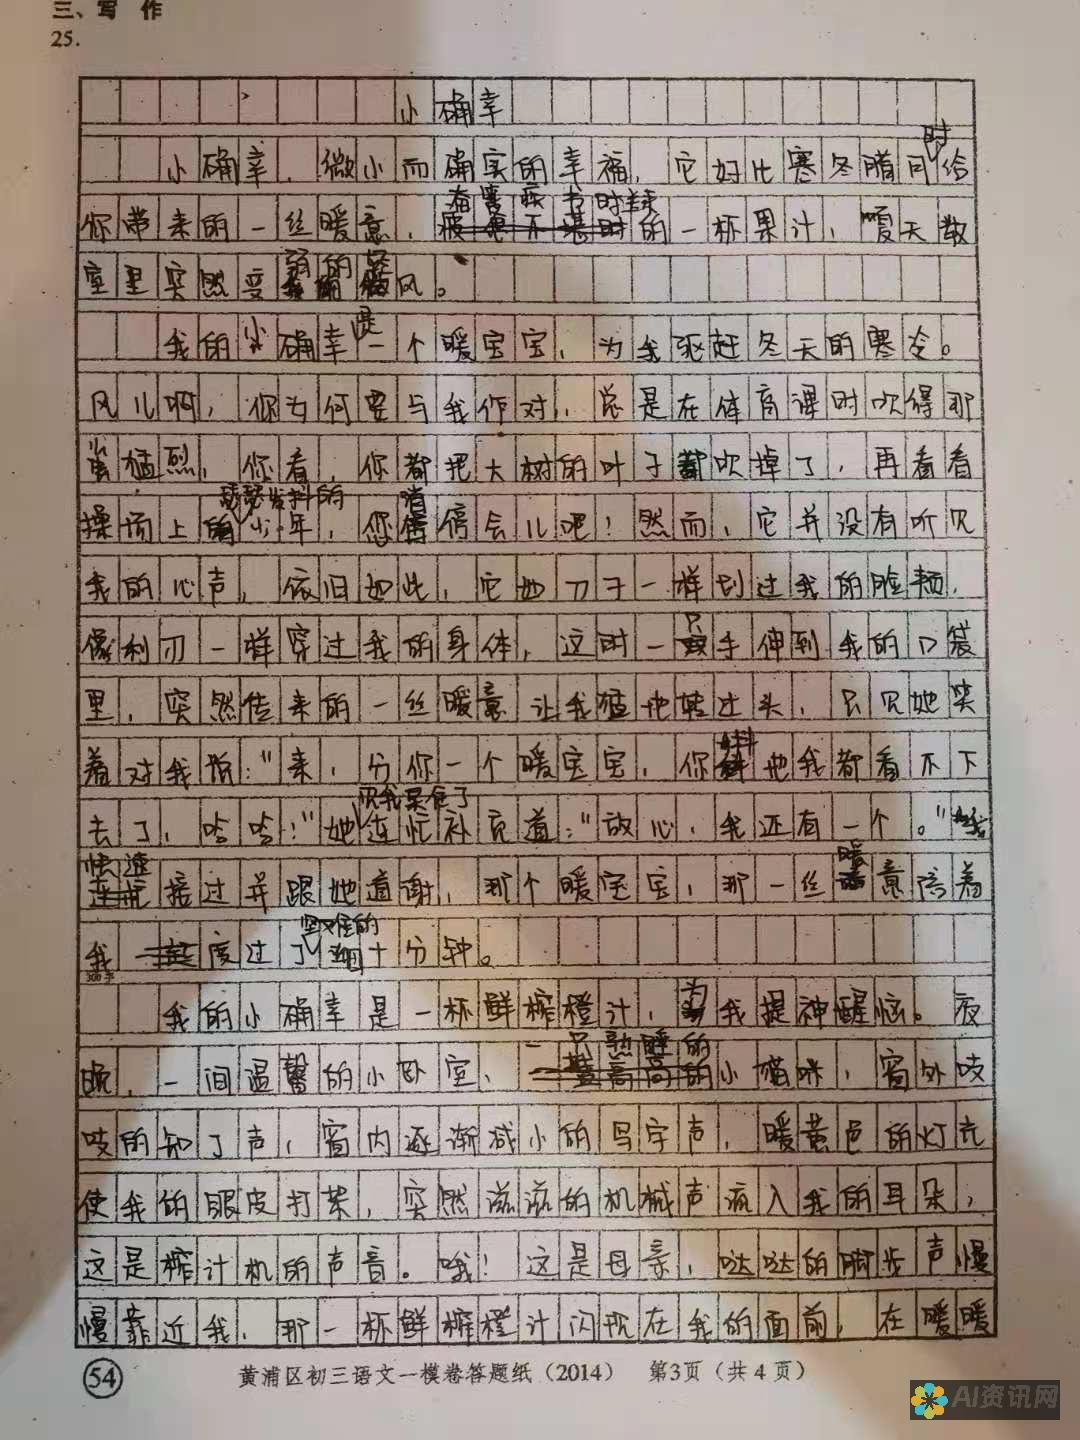 三、写 作
25.
小确幸
小确幸，微小而确实的幸福，它好比寒冬随同时给
你带来的一丝暖意，奋笔疾书时端来的一杯果汁，夏天教
室里突然变弱的空调风。
我的小确幸是一个暖宝宝，为我驱赶冬天的寒冷。
风儿啊，你为何要与我作对，总是在体育课时吹得那
蛮猛烈，你看，你都把大树的叶子都吹掉了，再看看
操场上瑟瑟发抖的少年，您消停会儿吧！然而，它并没有听见
我的心声，依旧如此，它如刀子一样划过我的脸颊，
像利刃一样穿过我的身体，这时一只手伸到我的口袋
里，突然传来的一丝暖意让我猛地转过头，只见她笑
着对我说："来，分你一个暖宝宝，你抖地我都看不下
去了，哈哈！"她见我呆住了连忙补充道："放心，我还有一个。"我
快速接过并跟她道谢，那个暖宝宝，那一丝暖意陪着
我度过了艰难的四十分钟。
300字
我的小确幸是一杯鲜榨橙汁，为我提神醒脑。夜
晚，一间温馨的小卧室，一只熟睡的小猫咪，窗外吱
吱的知了声，窗内逐渐减小的写字声，暖黄色的灯光
使我的眼皮打架，突然滋滋的机械声流入我的耳朵，
这是榨汁机的声音。哦！这是母亲，哒哒的脚步声慢
慢靠近我，那一杯鲜榨橙汁闪现在我的面前，在暖暖
54 黄浦区初三语文一模卷答题纸（2014） 第3页（共4页）
AI资讯网